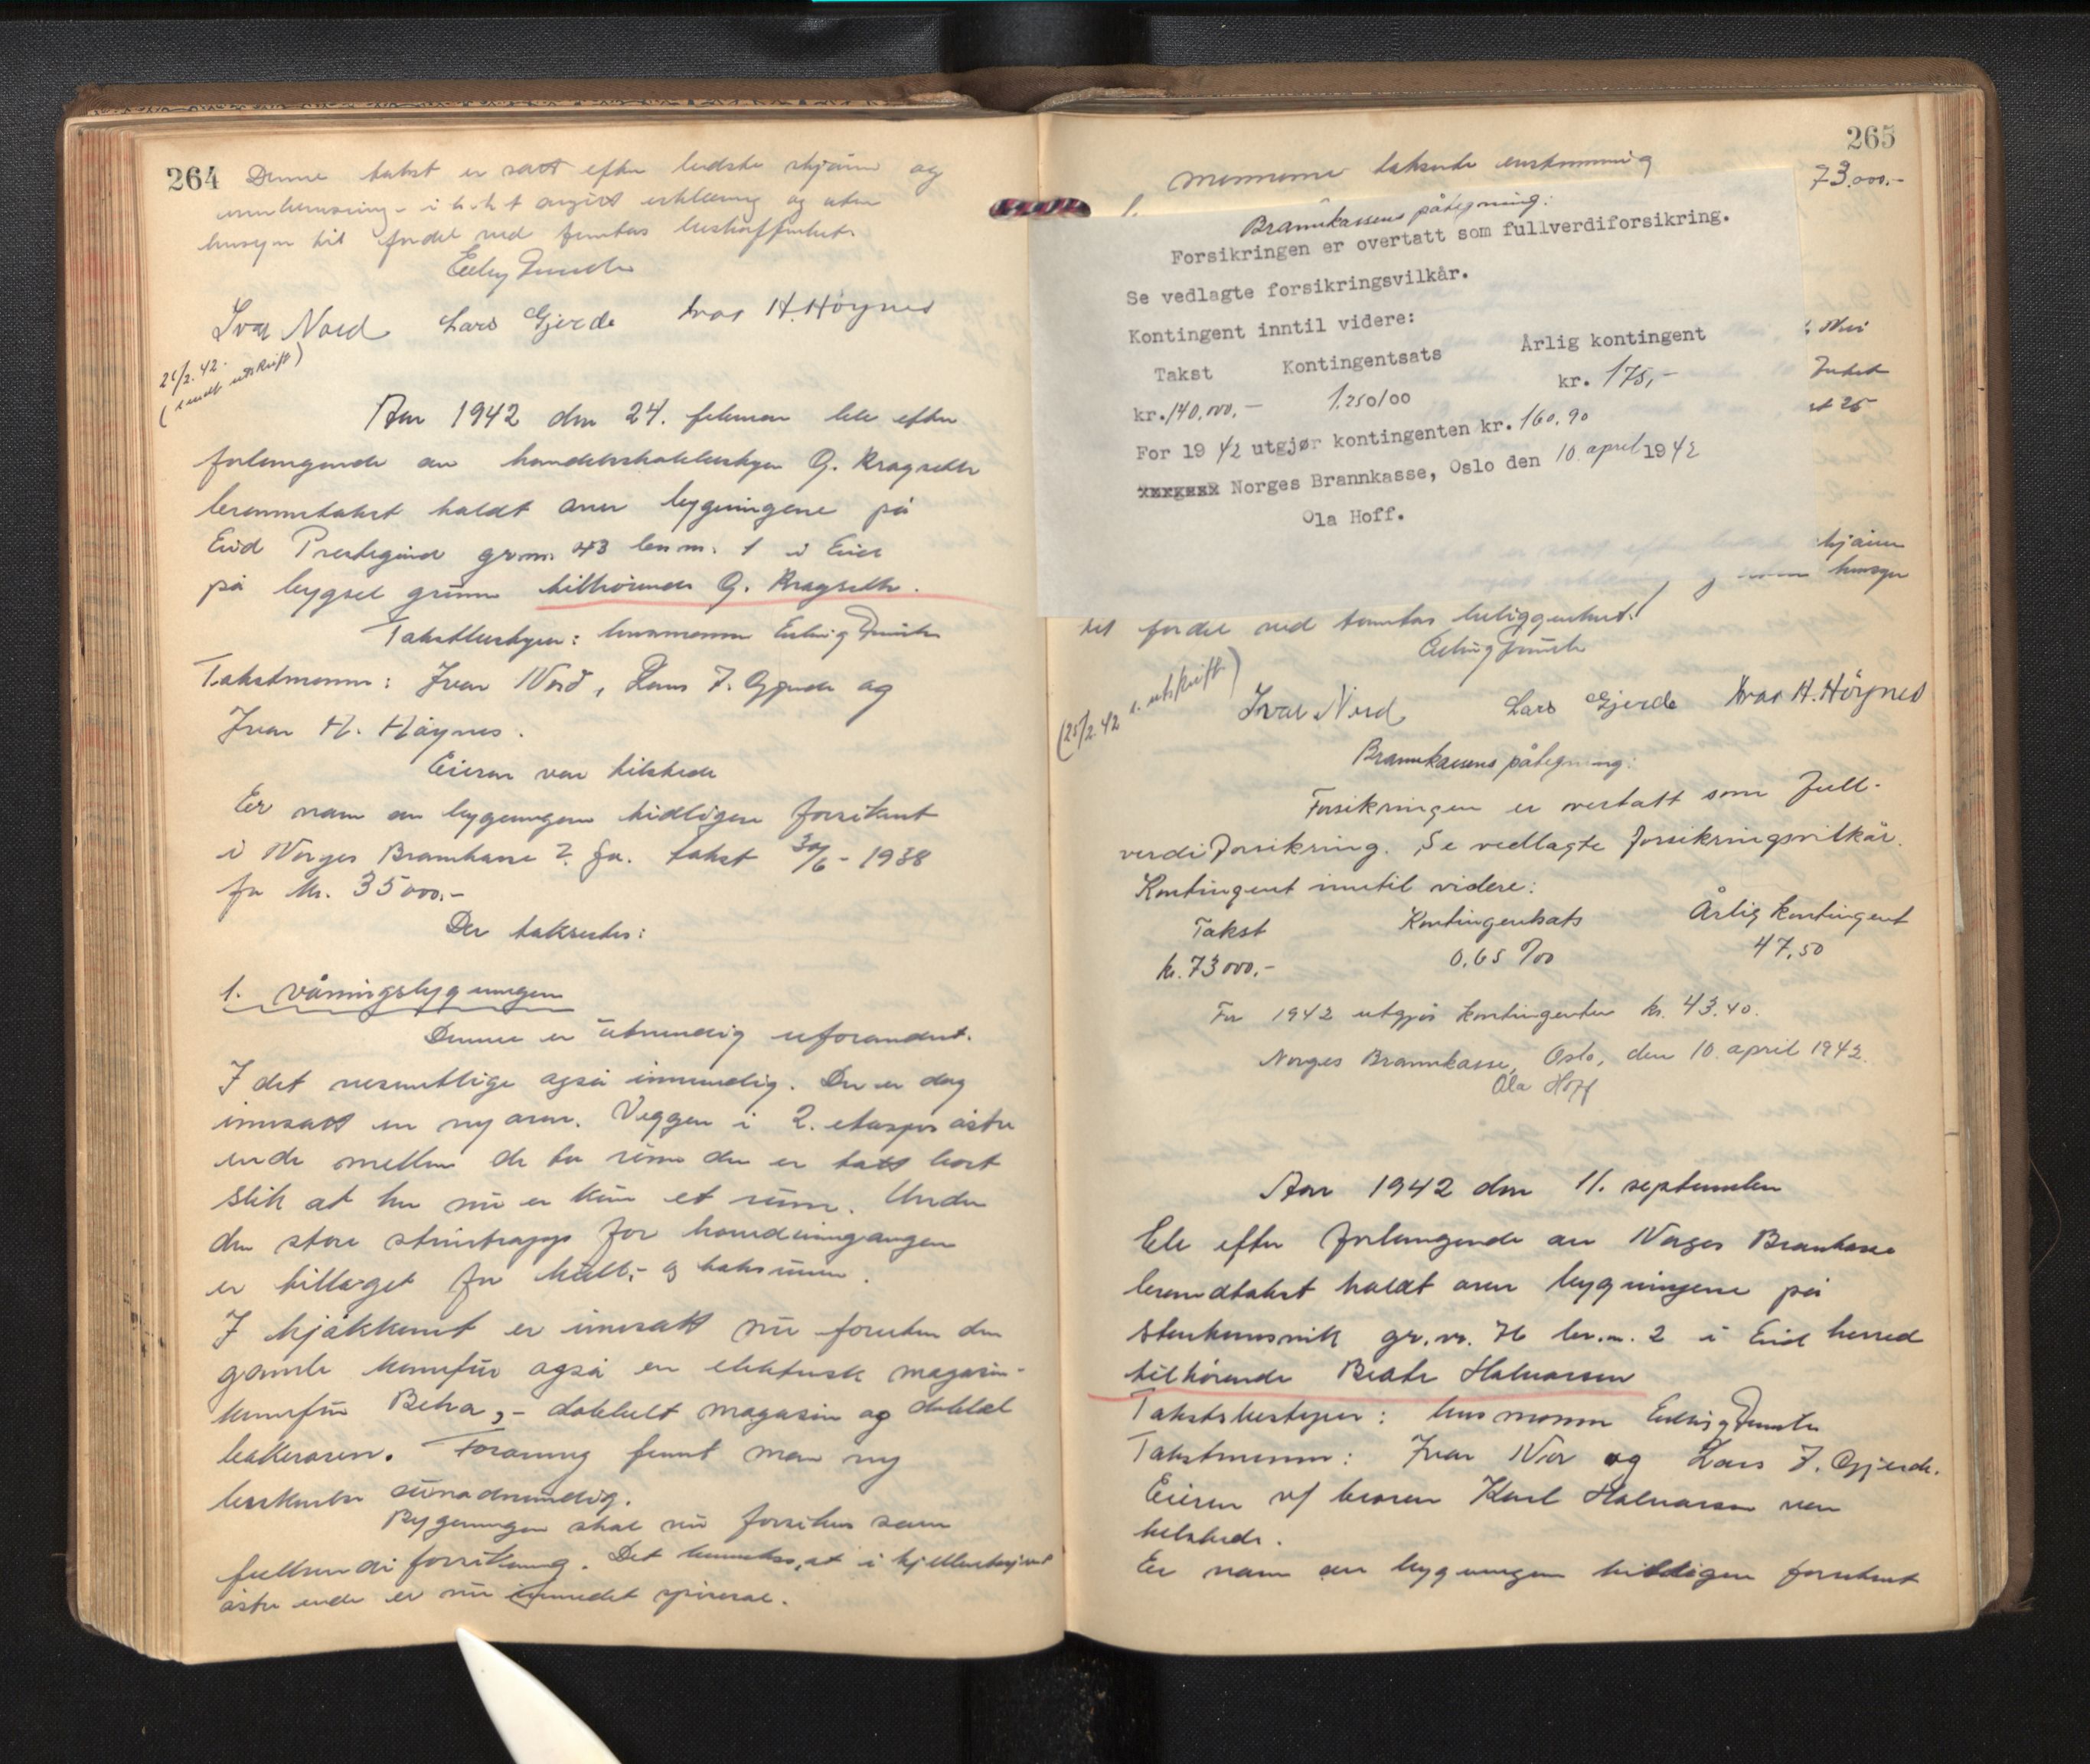 264
Denne takst er satt efter bedste skjønn og
overbevisning i h.h.t avgitt erklæring og uten
hensyn til fordel ved tomtas beskaffenhet.
Ivar Nord Lars Gjerde Ivar H. Høynes
2. 42.
(sendt utskrift)
Aar 1942 den 24. februar ble efter
forlangende av handelsbestyrer G. Kragseth
branntakst holdt over bygningene på
Eid Prestegård gr.nr. 43 br.nr. 1 i Eid
på bygsel grunn tilhørende G. Kragseth.
Takstbestyrer: lensmann Erling
Takstmenn: Ivar Nord, Lars J. Gjerde og
Ivar H. Høynes.
Eieren var tilstede
Er noen av bygningene tidligere forsikret
i Norges Brannkasse? Ja. takst 30/6 - 1938
for kr. 35000.-
Der takseres:
1. Våningsbygningen
Denne er utvendig uforandret.
I det vesentlige også innvendig. Der er dog
innsatt en ny ovn. Veggen i 2. etasjes østre
ende mellem de to rum der er tatt bort
slik at her nu er kun et rum. Under
den store steintrapp for hovedinngangen
er tillaget for kull- og koksrum.
I kjøkkenet er innsatt nu foruten den
gamle komfur også en elektrisk magasin-
komfur Beha, - dobbelt magasin og dobbel
bakerovn. Forøvrig finnes man ny
beskrivelse unødvendig.
Bygningen skal nu forsikres som
fullverdiforsikring. Det bemerkes, at i kjelleretasjens
østre ende er nu innredet spiserum.
265
mennene takserte enstemmig 73.000.-
1.
Brannkassens påtegning:
Forsikringen er overtatt som fullverdiforsikring.
Se vedlagte forsikringsvilkår.
Kontingent inntil videre:
Takst Kontingentsats Årlig kontingent
kr. 140.000,- 1.25 o/oo kr. 175,-
For 1942 utgjør kontingenten kr. 160,90
Norges Brannkasse, Oslo den 10. april 1942
Ola Hoff.
skjønn
hensyn
til fordel ved tomtas beliggenhet.
(25/2 42 s. utskrift)
Ivar Nord Lars Gjerde Ivar H. Høynes
Brannkassens påtegning:
Forsikringen er overtatt som full-
verdiforsikring. Se vedlagte forsikringsvilkår.
Kontingent inntil videre:
Takst Kontingentsats Årlig kontingent
kr. 73000,- 0,65 ‰ 47,50
For 1942 utgjør kontingenten kr. 43.40.
Norges Brannkasse, Oslo, den 10. april 1942.
Ola Hoff
Aar 1942 den 11. september
ble efter forlangende av Norges Brannkasse
branntakst holdt over bygningene på
gr.nr. 76 br.nr. 2 i Eid herred
tilhørende Beate Halvorsen
Takstbestyrer: lensmann Erling
Takstmenn: Ivar Nor og Lars J. Gjerde.
Eieren v/ broren Karl Halvorsen var
tilstede.
Er noen av bygningen tidligere forsikret